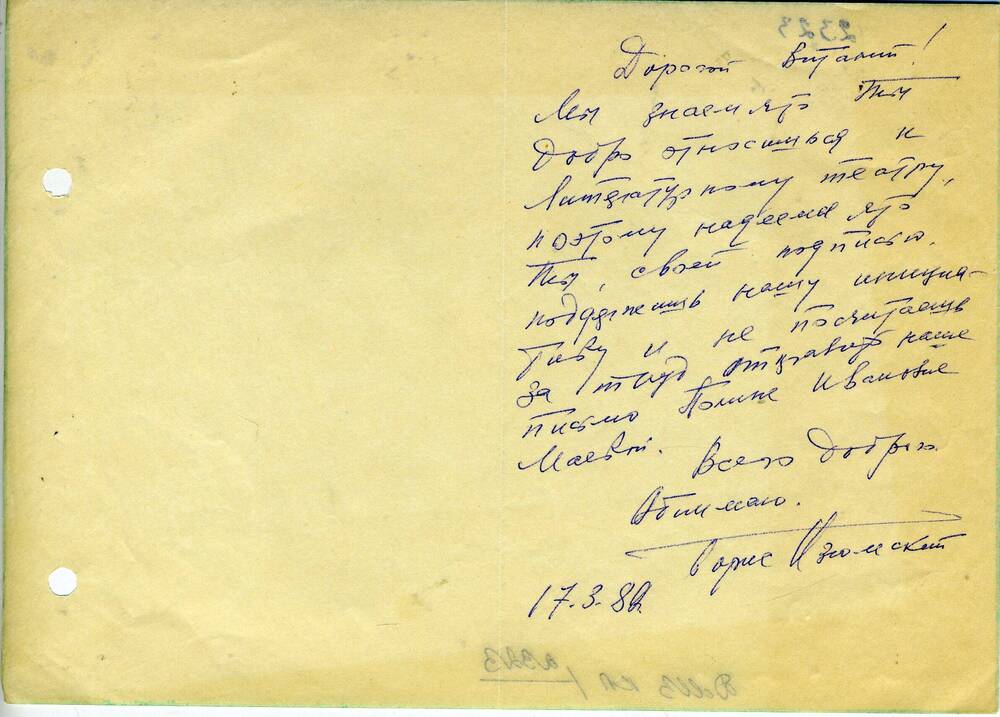 Дорогой Виталий!
Мы знаем что Ты
добро относишься к
Литературному театру,
поэтому надеемся что
Ты, своей подписью
поддержишь нашу инициа-
тиву и не посчитаешь
за труд отправить наше
письмо Полине Ивановне
Маевой. Всего доброго.
Обнимаю.
Борис Изюмский
17.3.82
2323